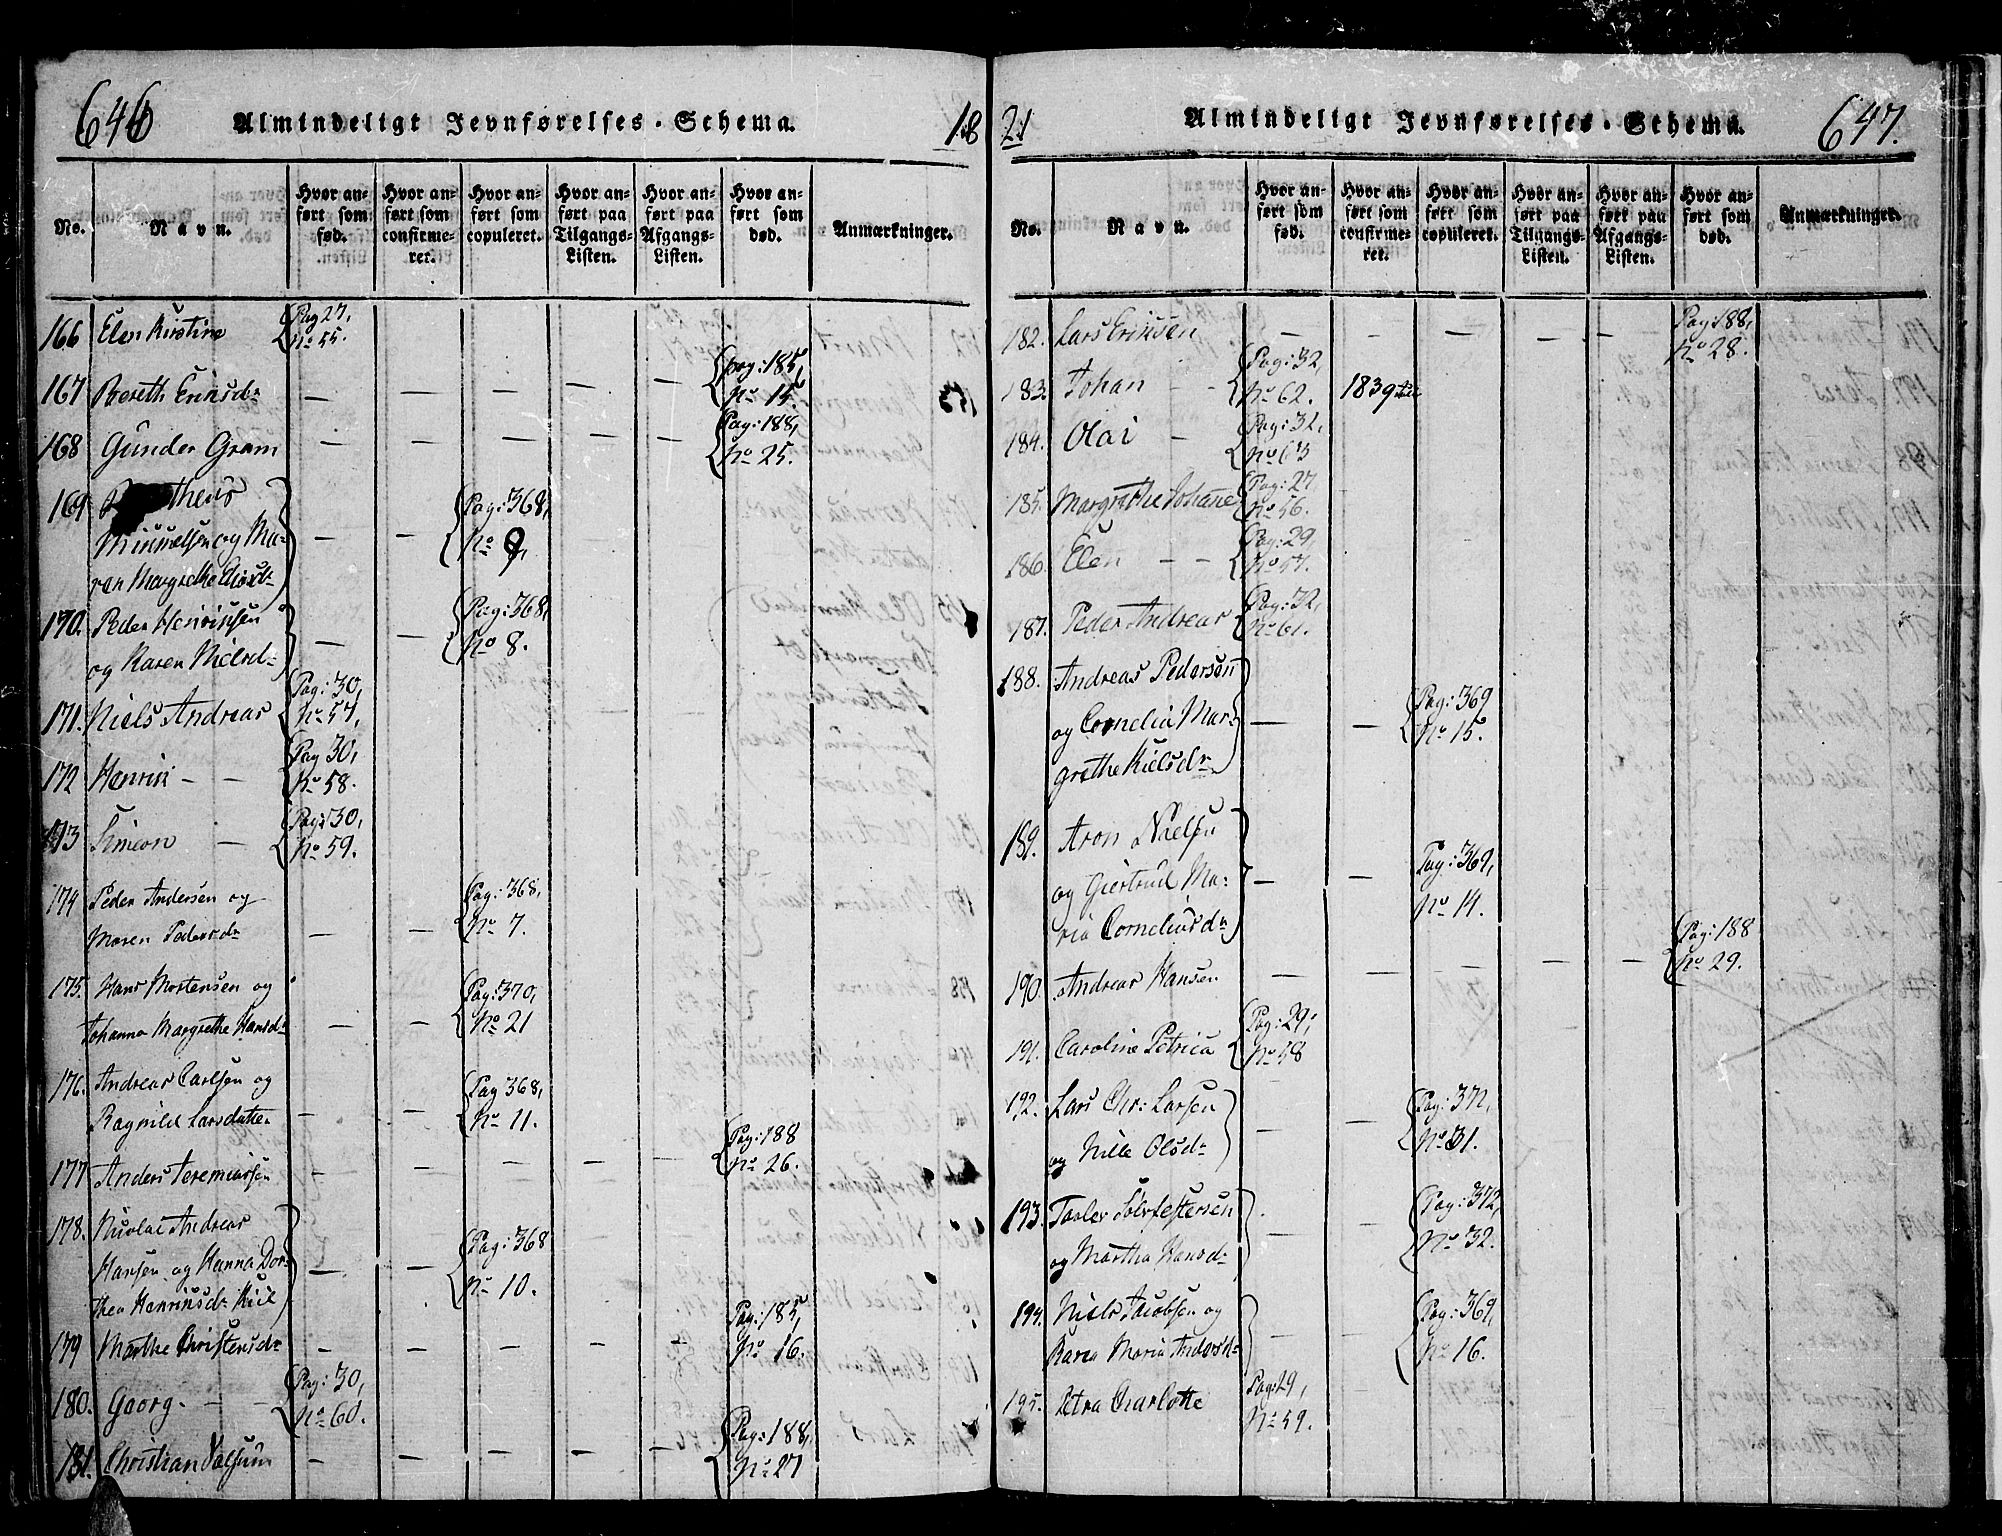 646
Almindeligt Jevnførelses-Schema.
18
No.
Navn.
Hvor anført som fød.
Hvor anført som confirmeret.
Hvor anført som copuleret.
Hvor anført paa Tilgangs-Listen.
Hvor anført paa Afgangs-Listen.
Hvor anført som død.
Anmærkninger.
166 Elen Kirstine Pag 27, No 55.
167 Bereth Eriksdr — — — — — pag: 185, No 15.
168 Gunder Gram — — — — — Pag: 188, No 25.
169 Mikkelsen og Ma-
ren Margrethe — — Pag: 368, No 9,
170. Peder Henriksen
og Karen Nielsdr — — Pag: 368, No 8.
171. Niels Andreas Pag: 30, No 57,
172 Henrik — — Pag 30, No 58.
173 Simeon — Pag: 30, No 59.
174 Peder Andersen og
Maren Pedersdr — — Pag: 368, No 7.
175. Hans Mortensen og
Johanna Margrethe Hansdr — — Pag: 370, No 21
176. Andreas Carlsen og
Ragnild Larsdatter — — Pag 368, No 11.
177 Anders Jeremiassen — — — — — Pag: 188 No 26.
178. Nicolai Andreas
Hansen og Hanna Dor-
thea Henriksdr Kiil — — Pag: 368 No 10.
179 Marthe Christensdr — — — — — Pag: 185, No 16.
180. Georg — — Pag: 30, No 60.
181. Christian Volqum — — — — — Pag: 188, No 27
21
Almindeligt Jevnførelses-Schema.
647.
No.
Navn.
Hvor anført som fød.
Hvor anført som confirmeret.
Hvor anført som copuleret.
Hvor anført paa Tilgangs-Listen.
Hvor anført paa Afgangs-Listen.
Hvor anført som død.
Anmærkninger.
182. Lars Eriksen — — — — — Pag: 188, No 28.
183. Johan — — Pag: 32, No 62. 1839
184. Olai — Pag: 32, No 63
185. Margrethe Johane Pag: 27 No 56.
186. Elen — — Pag: 29, No 57.
187. Peder Andreas Pag: 32, No 61.
188. Andreas Pedersen
og Cornelia Mar-
grethe Nielsdr — — Pag: 369 No 15.
189. Aron Nielsen
og Giertrud Ma-
ria Corneliusdr — — Pag: 369, No 14.
190. Andreas Hansen — — — — — Pag: 188 No 29.
191. Caroline Petrica Pag: 29, No 58
192. Lars Chr: Larsen
og Nille Olsdr — — Pag: 372, No 31.
193. Taaler Sølfestersen
og Martha Hansdr — — Pag: 372, No 32.
194. Niels Jacobsen og
Karen Maria Andersdr — — Pag: 369, No 16.
195. Petra Charlotte Pag: 29, No 59.